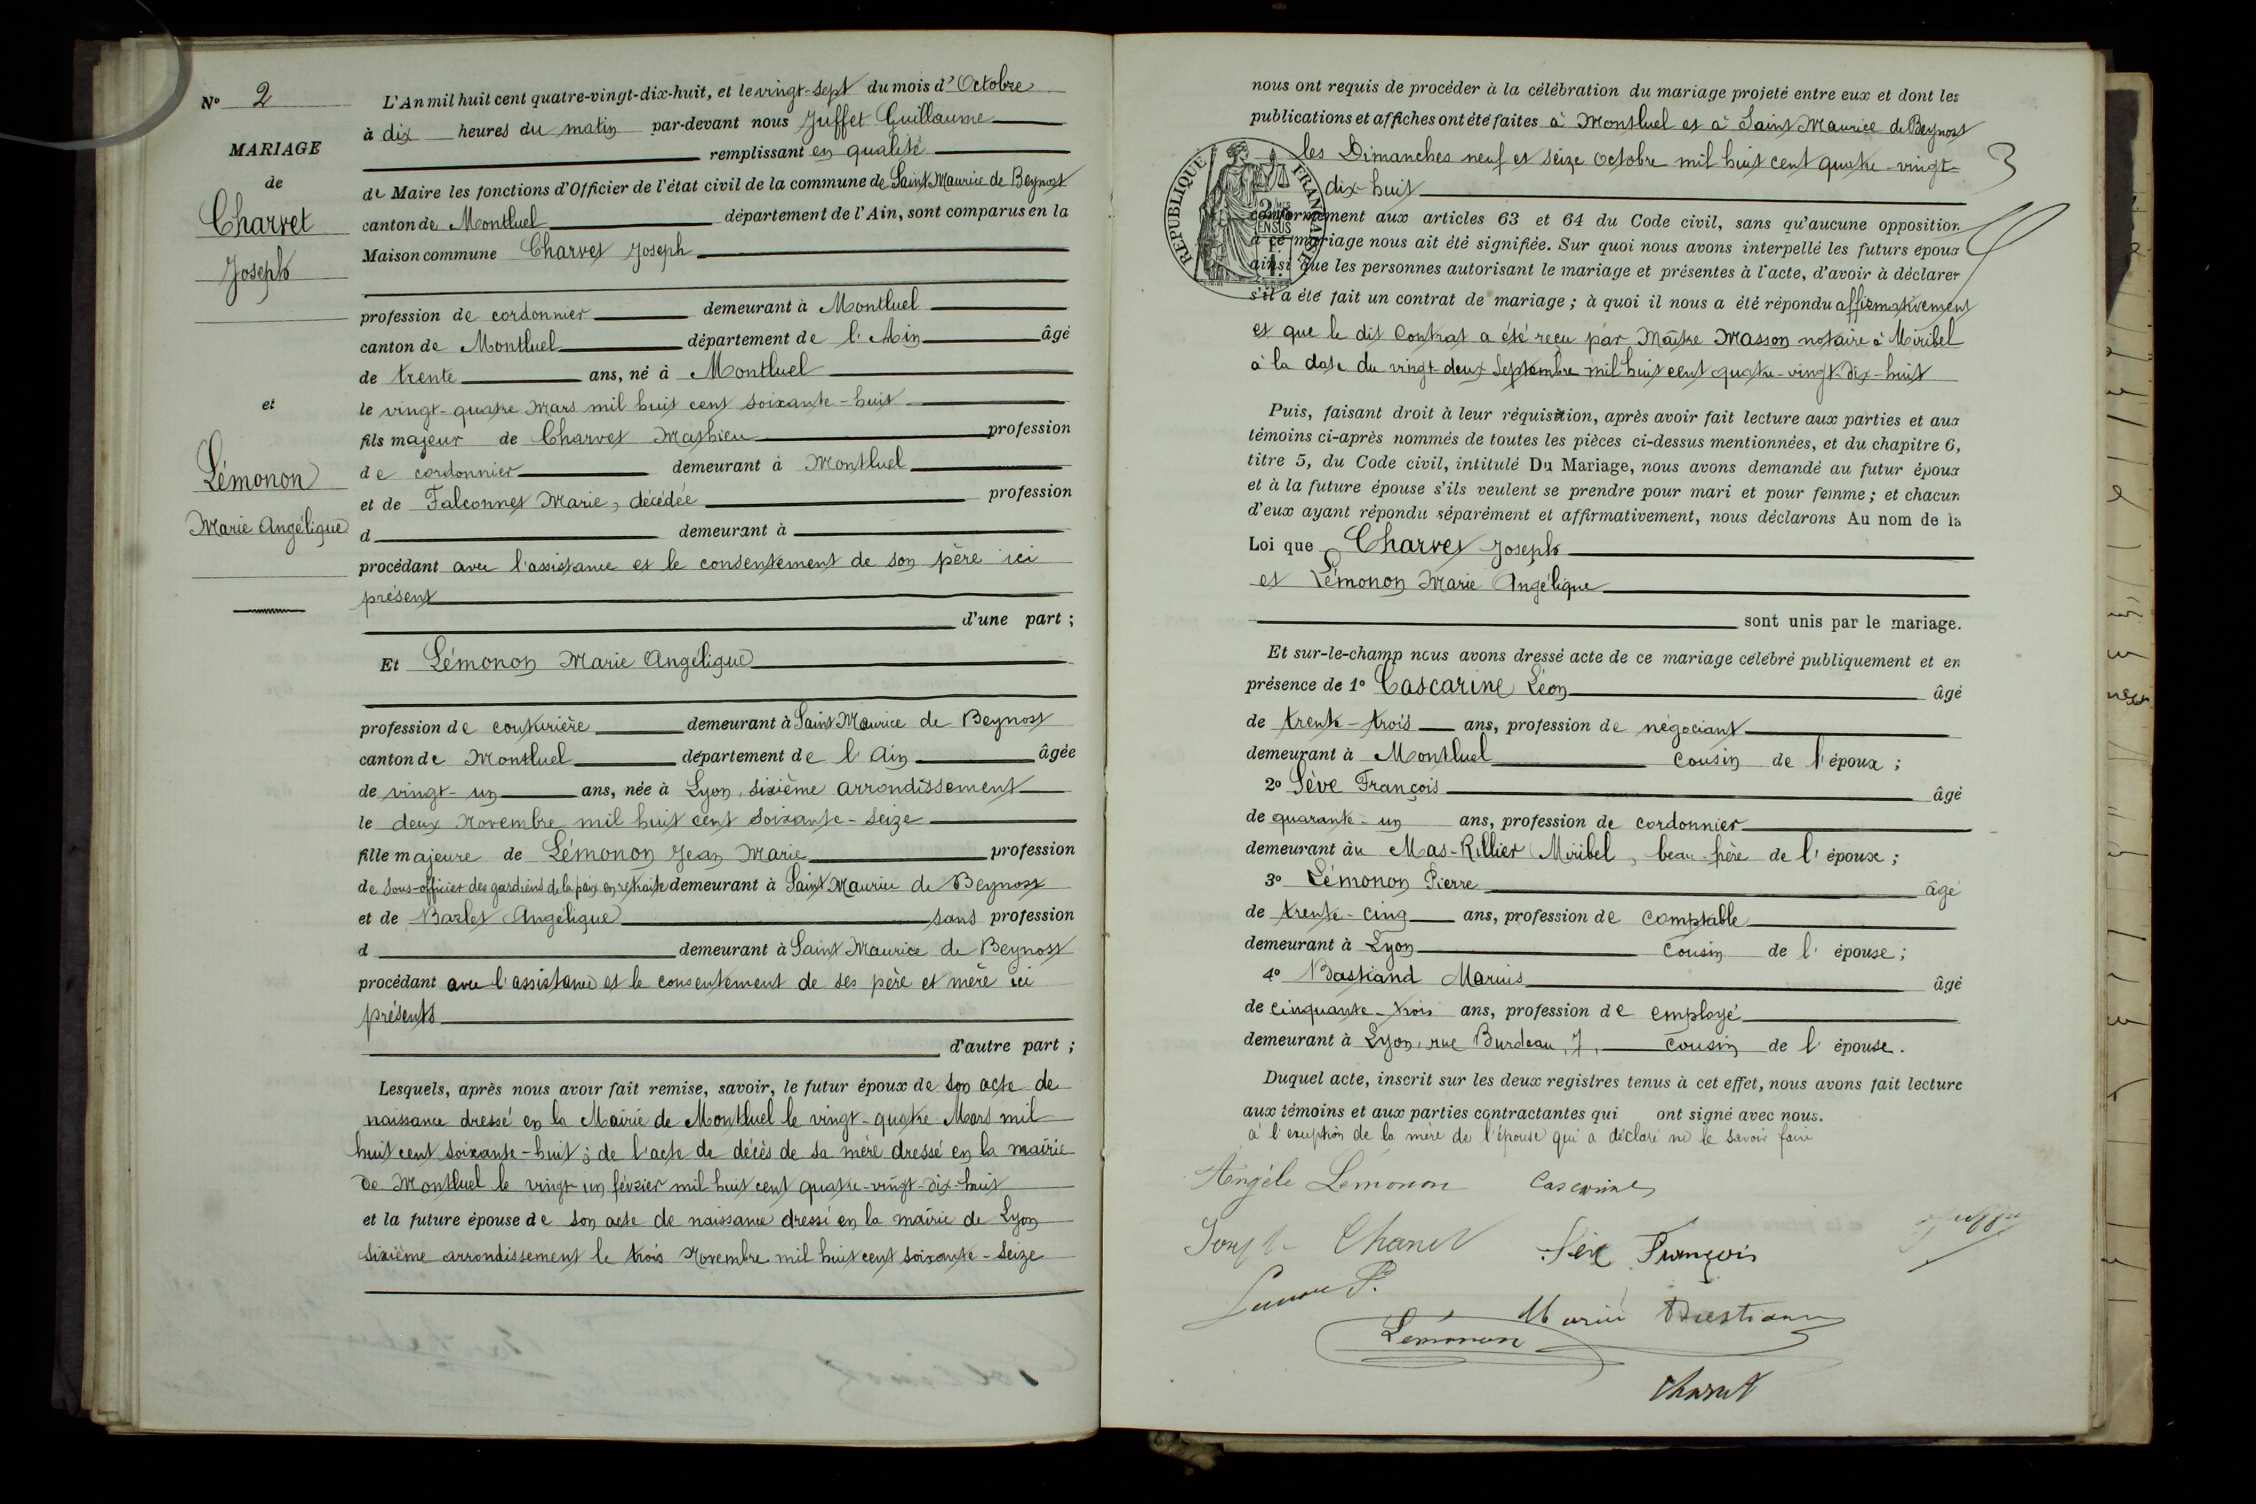 N° 2
MARIAGE
de
Charvet
Joseph
et
Lémonon
Marie Angélique
L'An mil huit cent quatre-vingt-dix-huit, et le vingt-sept du mois d'Octobre
à dix heures du matin par-devant nous Juffet Guillaume
remplissant en qualité
de Maire les fonctions d'Officier de l'état civil de la commune de Saint Maurice de Beynost
canton de Montluel département de l'Ain, sont comparus en la
Maison commune Charvet Joseph
profession de cordonnier demeurant à Montluel
canton de Montluel département de l'Ain âgé
de trente ans, né à Montluel
le vingt-quatre Mars mil huit cent soixante-huit
fils majeur de Charvet Mathieu profession
de cordonnier demeurant à Montluel
et de Falconnet Marie, décédée profession
d demeurant à
procédant avec l'assistance et le consentement de son père ici
présent
d'une part ;
Et Lémonon Marie Angélique
profession de couturière demeurant à Saint Maurice de Beynost
canton de Montluel département de l'Ain âgée
de vingt-un ans, née à Lyon, sixième arrondissement
le deux Novembre mil huit cent soixante-seize
fille majeure de Lémonon Jean Marie profession
de sous-officier des gardiens de la paix en retraite demeurant à Saint Maurice de Beynost
et de Barlet Angélique sans profession
d demeurant à Saint Maurice de Beynost
procédant avec l'assistance et le consentement de ses père et mère ici
présents
d'autre part ;
Lesquels, après nous avoir fait remise, savoir, le futur époux de son acte de
naissance dressé en la Mairie de Montluel le vingt-quatre Mars mil
huit cent soixante-huit ; de l'acte de décès de sa mère dressé en la mairie
de Montluel le vingt un février mil huit cent quatre-vingt-dix-huit
et la future épouse de son acte de naissance dressé en la mairie de Lyon
sixième arrondissement le trois Novembre mil huit cent soixante-seize
nous ont requis de procéder à la célébration du mariage projeté entre eux et dont les
publications et affiches ont été faites à Montluel et à Saint Maurice de Beynost
les Dimanches neuf et seize octobre mil huit cent quatre-vingt-
3
dix-huit
RÉPUBLIQUE FRANÇAISE
conformément aux articles 63 et 64 du Code civil, sans qu'aucune opposition
à ce mariage nous ait été signifiée. Sur quoi nous avons interpellé les futurs époux
ainsi que les personnes autorisant le mariage et présentes à l'acte, d'avoir à déclarer
s'il a été fait un contrat de mariage ; à quoi il nous a été répondu affirmativement
et que le dit Contrat a été reçu par Maître Masson notaire à Miribel
à la date du vingt-deux Septembre mil huit cent quatre-vingt-dix-huit
Puis, faisant droit à leur réquisition, après avoir fait lecture aux parties et aux
témoins ci-après nommés de toutes les pièces ci-dessus mentionnées, et du chapitre 6,
titre 5, du Code civil, intitulé Du Mariage, nous avons demandé au futur époux
et à la future épouse s'ils veulent se prendre pour mari et pour femme ; et chacun
d'eux ayant répondu séparément et affirmativement, nous déclarons Au nom de la
Loi que Charvet Joseph
et Lémonon Marie Angélique
sont unis par le mariage.
Et sur-le-champ nous avons dressé acte de ce mariage célébré publiquement et en
présence de 1° Cascarine Léon âgé
de trente-trois ans, profession de négociant
demeurant à Montluel cousin de l'époux ;
2° Sève François âgé
de quarante-un ans, profession de cordonnier
demeurant au Mas-Rillier Miribel, beau-frère de l'époux ;
3° Lémonon Pierre âgé
de trente-cinq ans, profession de comptable
demeurant à Lyon cousin de l'épouse ;
4° Bastiand Marius âgé
de cinquante-trois ans, profession de employé
demeurant à Lyon, rue Burdeau, 7, cousin de l'épouse.
Duquel acte, inscrit sur les deux registres tenus à cet effet, nous avons fait lecture
aux témoins et aux parties contractantes qui ont signé avec nous.
à l'exception de la mère de l'épouse qui a déclaré ne le savoir faire
Angèle Lémonon Cascarine
Joseph Charvet Sève François Juffet
P. Marius Bastiand
Lémonon
Charvet